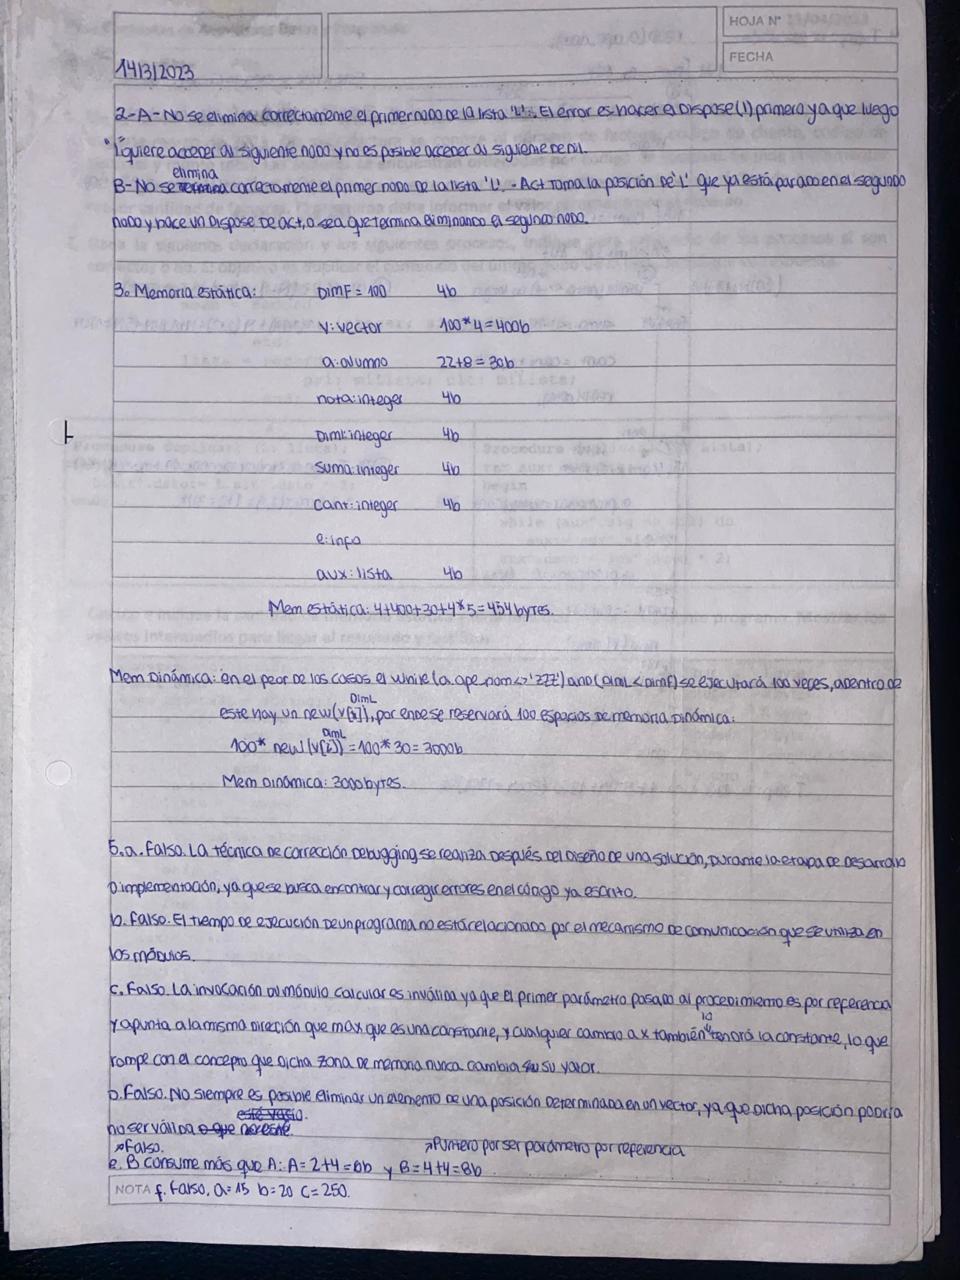 HOJA N°
FECHA
14/3/2023
2-A- No se elimina correctamente el primer nodo de la lista 'L'. El error es hacer el Dispose(l) primero ya que luego
quiere acceder al siguiente nodo y no es posible acceder al siguiente de nil.
elimina
B- No se termina correctamente el primer nodo de la lista 'L'. - Act toma la posición de 'L' que ya está parado en el segundo
nodo y hace un Dispose de act, o sea que termina eliminando el segundo nodo.
3. Memoria estática: DimF = 100 4b
v: vector 100*4=400b
a: alumno 22+8=30b
nota: integer 4b
DimL: integer 4b
suma: integer 4b
cant: integer 4b
e: info
aux: lista 4b
Mem estática: 4+400+30+4*5=454 bytes.
Mem Dinámica: en el peor de los casos el while (a.ape_nom<>'ZZZ') and (DimL < DimF) se ejecutará 100 veces, adentro de
DimL
este hay un new(v[i]), por ende se reservará 100 espacios de memoria dinámica:
DimL
100* new(v[i]) = 100*30= 3000b
Mem Dinámica: 3000 bytes.
5.a. Falso. La técnica de corrección Debugging se realiza después del diseño de una solución, durante la etapa de desarrollo
o implementación, ya que se busca encontrar y corregir errores en el código ya escrito.
b. Falso. El tiempo de ejecución de un programa no está relacionado por el mecanismo de comunicación que se utiliza en
los módulos.
c. Falso. La invocación al módulo calcular es inválida ya que el primer parámetro pasado al procedimiento es por referencia
y apunta a la misma dirección que max que es una constante, y cualquier cambio a x también lo tendrá la constante, lo que
rompe con el concepto que dicha zona de memoria nunca cambia su valor.
D. Falso. No siempre es posible eliminar un elemento de una posición determinada en un vector, ya que dicha posición podría
esté vacio.
no ser válida o que no esté.
Falso. Puntero por ser parámetro por referencia
e. B consume más que A: A=2+4=6b y B=4+4=8b
NOTA f. Falso. a=15 b=20 c=250.